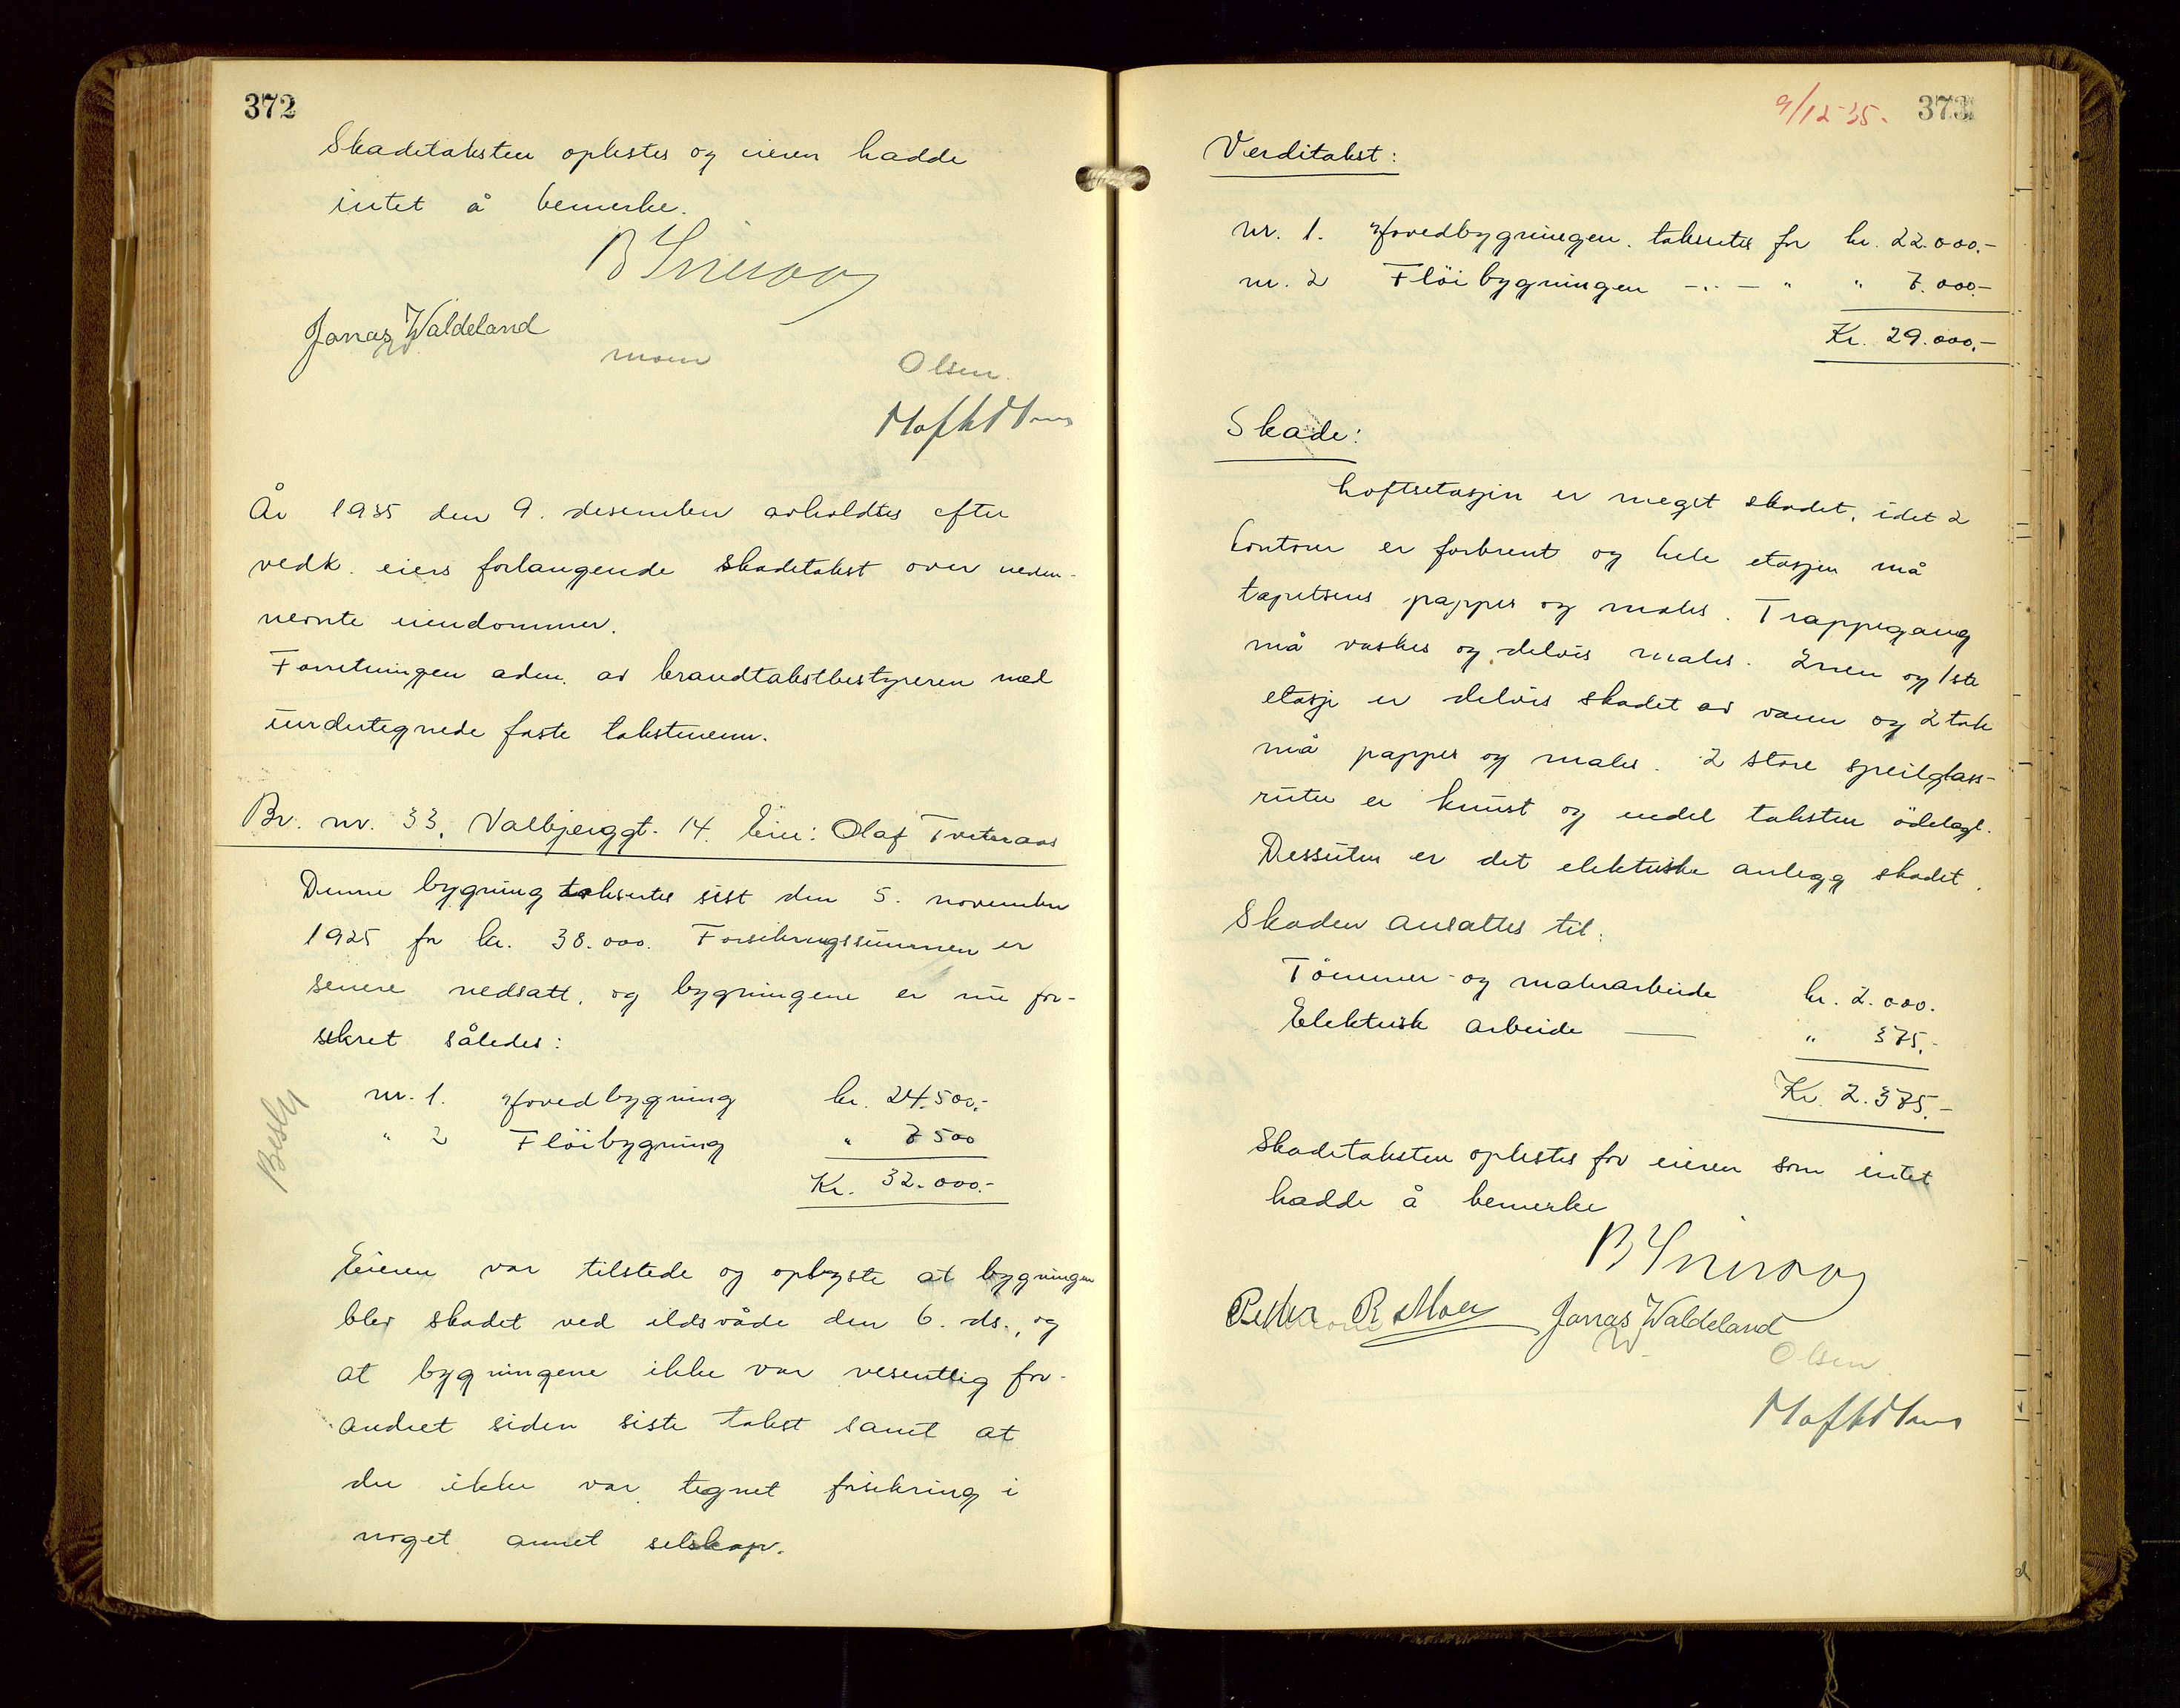 372
Skadetaksten oplestes og eieren hadde
intet å bemerke.
Jonas Waldeland
Olsen.
År 1935 den 9. desember avholdtes efter
vedk. eiers forlangende skadetakst over neden-
nevnte eiendommer.
Forretningen adm. av brandtakstbestyreren med
undertegnede faste takstmenn.
Br. nr. 33, Valbjerggt. 14. Eier: Olaf Tveteraas
Denne bygning taksertes sist den 5. november
1925 for kr. 38.000. Forsikringssummen er
senere nedsatt, og bygningene er nu for-
sikret således:
nr. 1. Hovedbygning kr. 24.500.-
" 2 Fløibygning " 7500
Kr. 32.000.-
Eieren var tilstede og oplyste at bygningen
blev skadet ved ildsvåde den 6. ds., og
at bygningene ikke var vesentlig for-
andret siden siste takst samt at
der ikke var tegnet forsikring i
noget annet selskap.
9/12-35. 373
Verditakst:
nr. 1. Hovedbygningen. taksertes for kr. 22.000.-
nr. 2 Fløibygningen -"- " " 7.000.-
Kr. 29.000.-
Skade:
Loftsetasjen er meget skadet, idet 2
kontorer er forbrent og hele etasjen må
tapetseres pappes og males. Trappegang
må vaskes og delvis males. 2nen og 1ste
etasje er delvis skadet av vann og 2 tak
må pappes og males. 2 store speilglass-
ruter er knust og endel taksten ødelagt.
Dessuten er det elektriske anlegg skadet.
Skaden ansattes til:
Tømmer- og malerarbeide kr. 2.000.
Elektrisk arbeide — " 375.-
Kr. 2.375.-
Skadetaksten oplestes for eieren som intet
hadde å bemerke
Petter R Moer Jonas Waldeland
Olsen